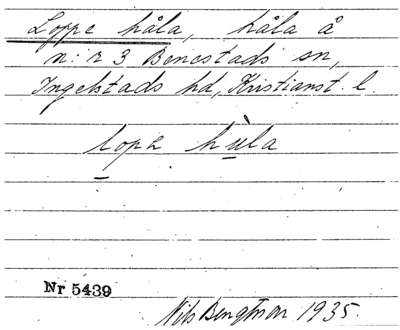 Loppe håla, håla å
n:r 3 Benestads sn,
Ingelstads hd, Kristianst. l.
lopa hùla
Nr 5439
Nils Bengtson 1935.